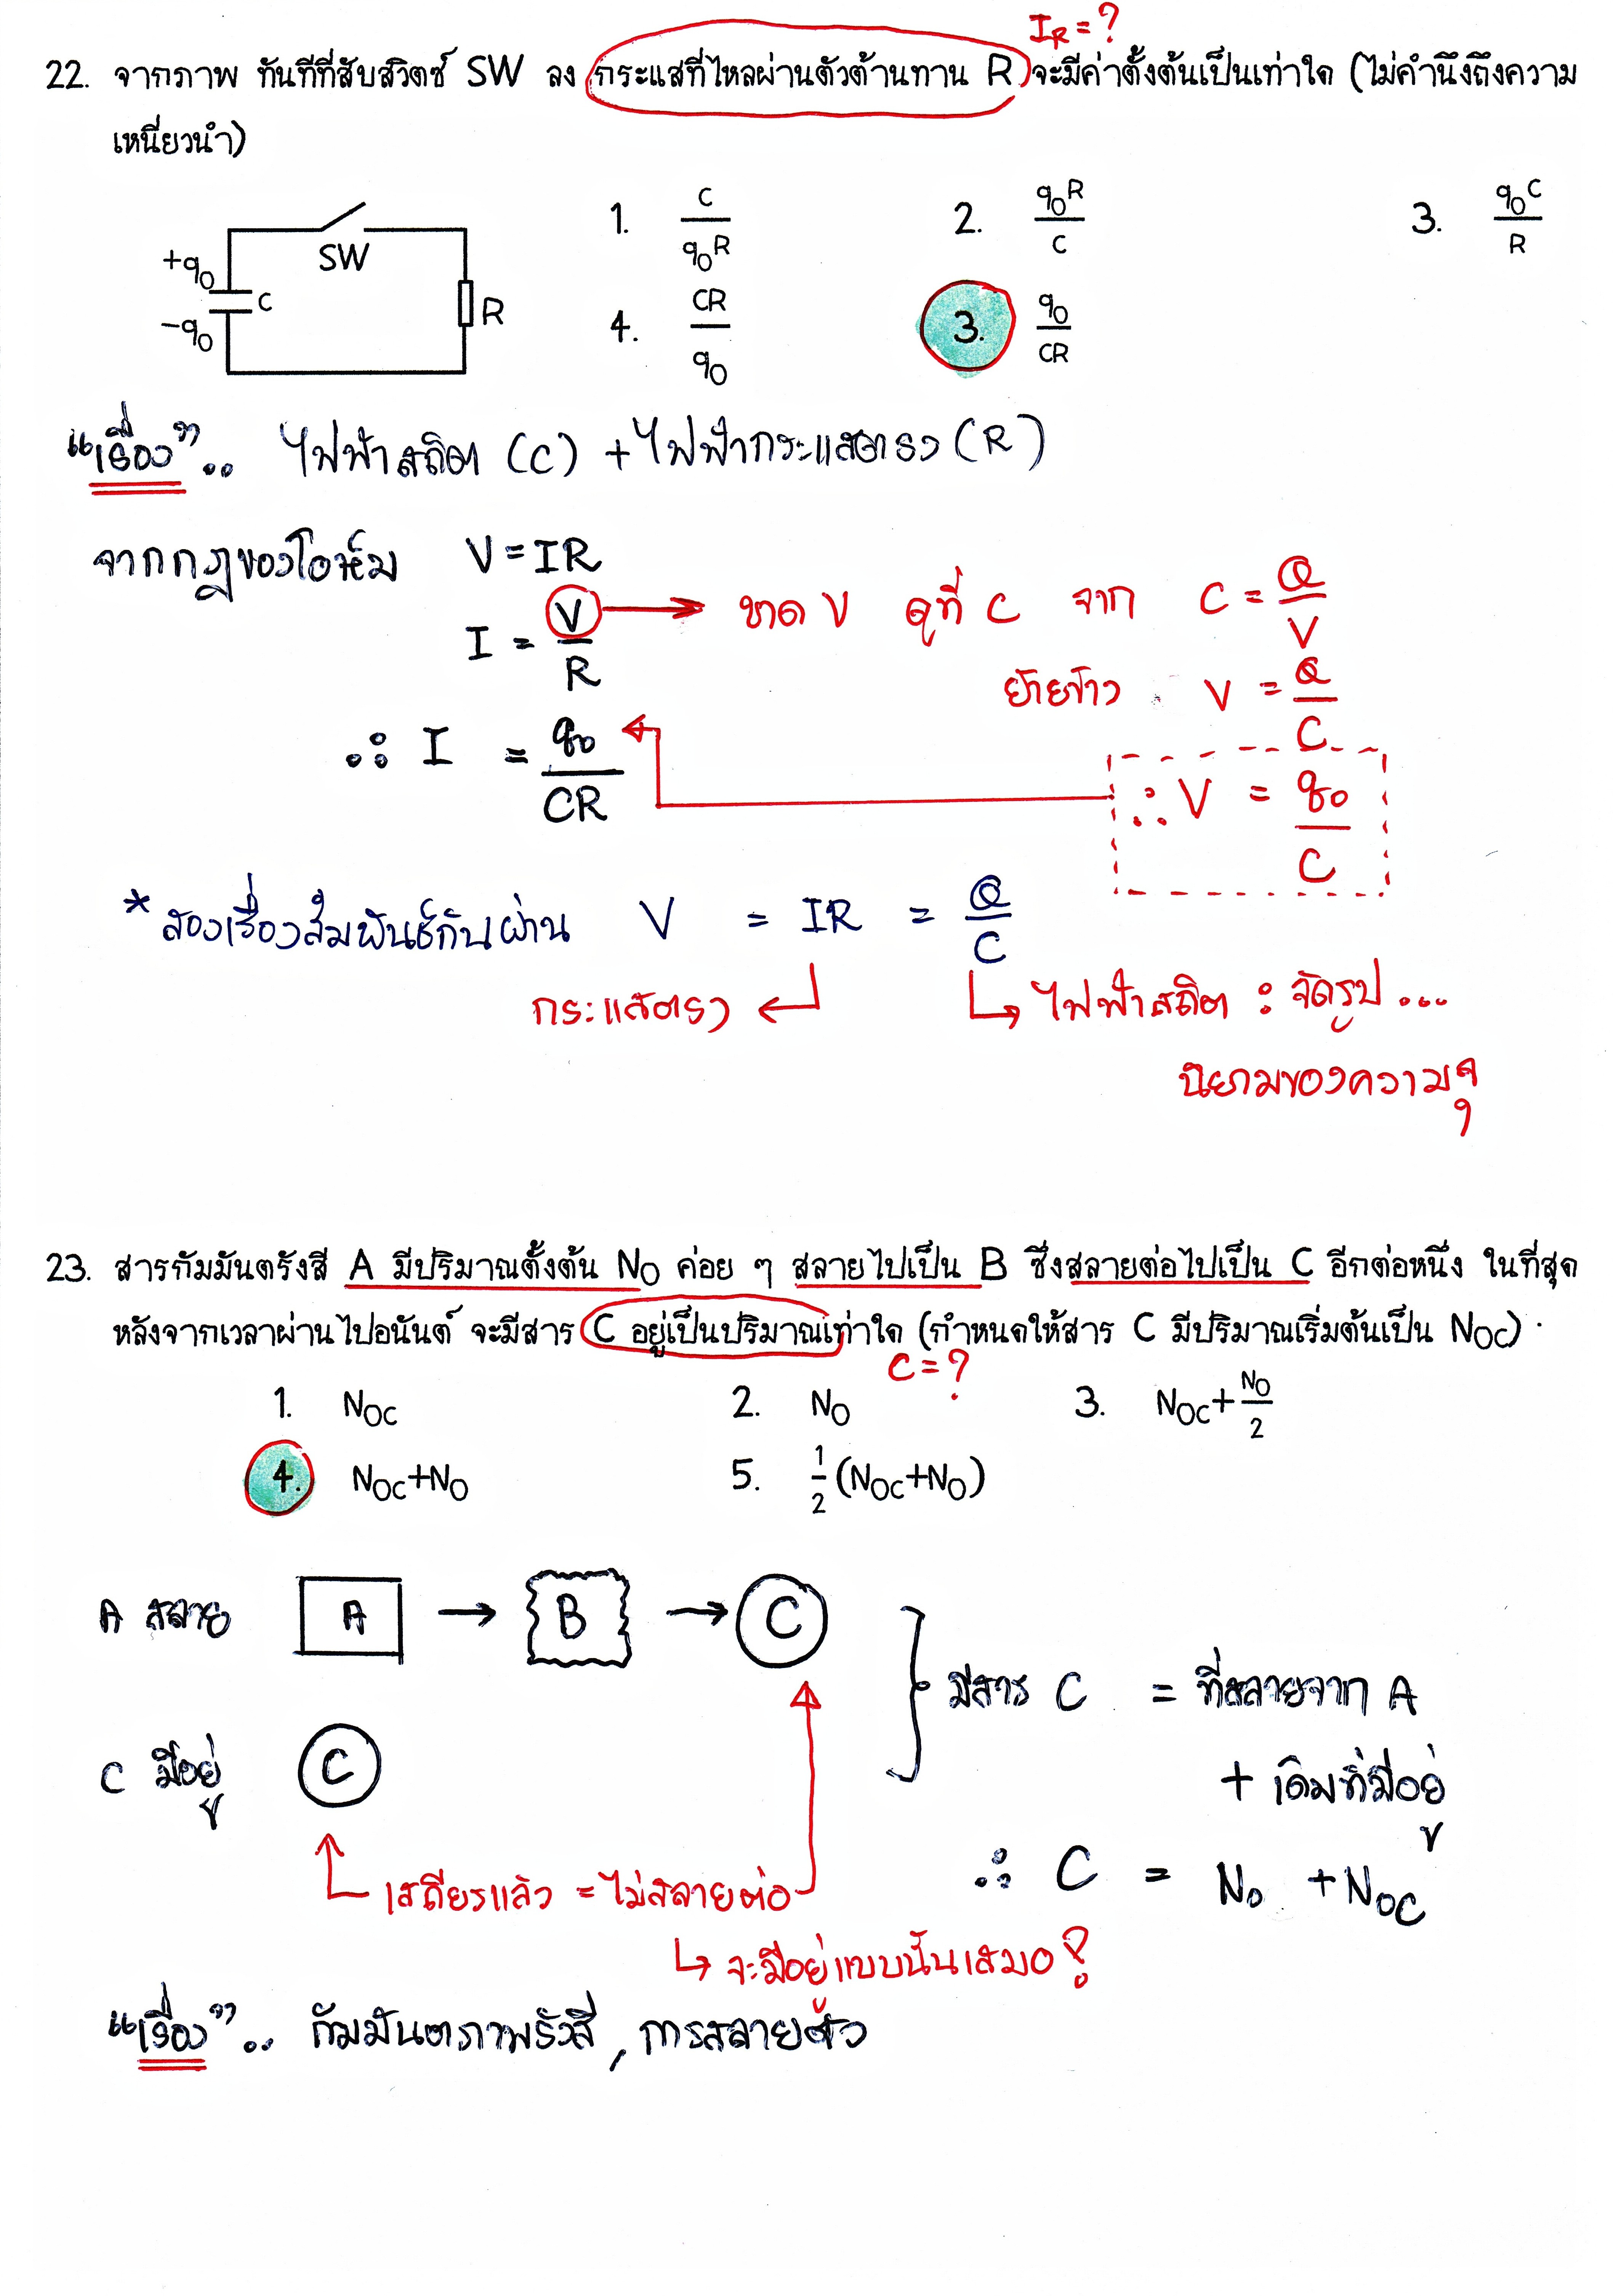 I_R = ?
22. จากภาพ ทันทีที่สับสวิตซ์ SW ลง กระแสที่ไหลผ่านตัวต้านทาน R จะมีค่าตั้งต้นเป็นเท่าใด (ไม่คำนึงถึงความ
เหนี่ยวนำ)
1. C/q₀R 2. q₀R/C 3. q₀C/R
4. CR/q₀ 3. q₀/CR
SW
+q₀
C
-q₀
R
"เรื่อง".. ไฟฟ้าสถิต (C) + ไฟฟ้ากระแสตรง (R)
จากกฎของโอห์ม V = IR
I = V/R → ขาด V ดูที่ C จาก C = Q/V
ย้ายข้าง V = Q/C
∴ I = q₀/CR
∴ V = q₀/C
* สองเรื่องสัมพันธ์กันผ่าน V = IR = Q/C
กระแสตรง ↵ ↳ ไฟฟ้าสถิต : จัดรูป ...
นิยามของความจุ
23. สารกัมมันตรังสี A มีปริมาณตั้งต้น N₀ ค่อย ๆ สลายไปเป็น B ซึ่งสลายต่อไปเป็น C อีกต่อหนึ่ง ในที่สุด
หลังจากเวลาผ่านไปอนันต์ จะมีสาร C อยู่เป็นปริมาณเท่าใด (กำหนดให้สาร C มีปริมาณเริ่มต้นเป็น N_OC)
C = ?
1. N_OC 2. N_O 3. N_OC + N_O/2
4. N_OC + N_O 5. 1/2 (N_OC + N_O)
A สลาย A → B → C
มีสาร C = ที่สลายจาก A
C มีอยู่ C
+ เดิมที่มีอยู่
เสถียรแล้ว = ไม่สลายต่อ
∴ C = N₀ + N_OC
↳ จะมีอยู่แบบนั้นเสมอ !
"เรื่อง".. กัมมันตภาพรังสี , การสลายตัว